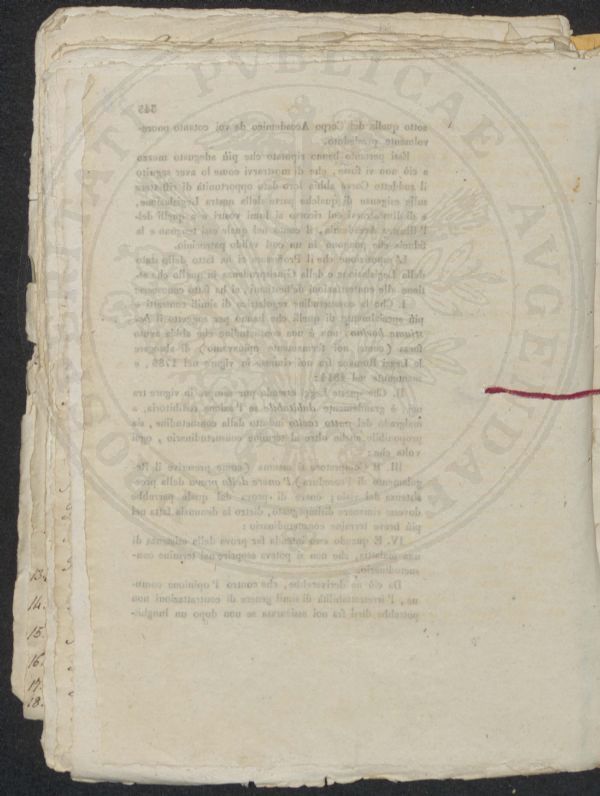 PROSPERITATI PVBLICAE AVGENDAE
345
sotto quella del Corpo Accademico da voi cotanto onore-
volmente preseduto.
Essi pertanto hanno riputato che più adeguato mezzo
a ciò non vi fusse, che di mostrarvi come lo aver seguito
il suddetto Corso abbia loro dato opportunità di riflettere
sulle esigenze di qualche parte della nostra Legislazione,
e di dimandarvi sul ricorso ai lumi vostri e a quelli del-
l' Illustre Accademia, il conto nel quale essi tengono e la
fiducia che pongono in un così valido patrocinio.
L' esposizione che il Professore ci ha fatto dello stato
della Legislazione e della Giurisprudenza in quello che at-
tiene alle contrattazioni de' bestiami, ci ha fatto conoscere
I. Che la consuetudine regolatrice di simili contratti e
più specialmente di quelli che hanno per soggetto il be-
stiame bovino; non è una consuetudine che abbia avuto
forza (come noi fermamente opiniamo) di abrogare
le Leggi Romane fra noi rimaste in vigore nel 1786, e
nuovamente nel 1814:
II. Che queste Leggi essendo pur sempre in vigore tra
noi, è grandemente dubitabile se l' azione redibitoria, a
malgrado del patto tacito indotto dalla consuetudine, sia
proponibile anche oltre al termine consuetudinario, ogni
volta che:
III. Il Compratore si assuma (come prescrive il Re-
golamento di Procedura) l' onere della prova della pree-
sistenza del vizio; onere di prova dal quale parrebbe
dovesse rimanere disimpegnato, dietro la denunzia fatta nel
più breve termine consuetudinario:
IV. E quando esso intenda far prova della esistenza di
una malattia, che non si poteva scoprire nel termine con-
suetudinario.
Da ciò ne deriverebbe, che contro l' opinione comu-
ne, l' irretrattabilità di simil genere di contrattazioni non
potrebbe dirsi fra noi assicurata se non dopo un lunghis-
13.
14.
15.
16.
17.
18.